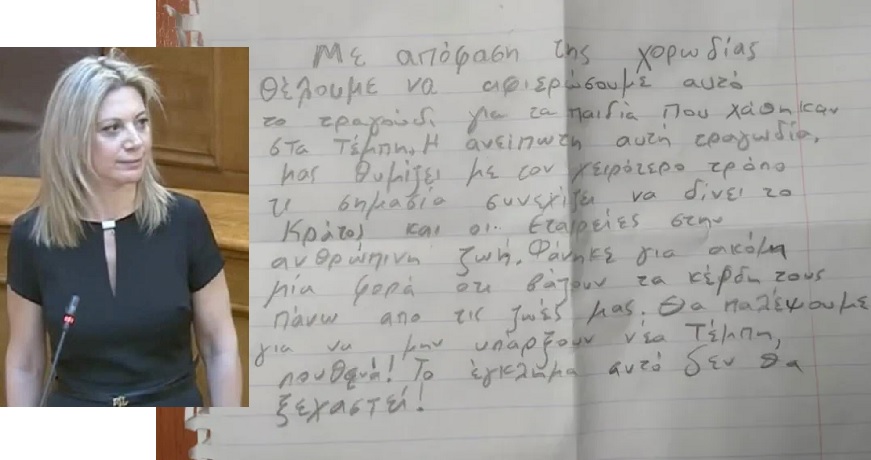 Με απόφαση της χορωδίας
θέλουμε να αφιερώσουμε αυτό
το τραγούδι για τα παιδιά που χάθηκαν
στα Τέμπη. Η ανείπωτη αυτή τραγωδία,
μας θυμίζει με τον χειρότερο τρόπο
τι σημασία συνεχίζει να δίνει το
Κράτος και οι εταιρείες στην
ανθρώπινη ζωή. Φάνηκε για ακόμη
μία φορά οτι βάζουν τα κέρδη τους
πάνω απο τις ζωές μας. Θα παλέψουμε
για να μην υπάρξουν νέα Τέμπη,
πουθενά! Το έγκλημα αυτό δεν θα
ξεχαστεί!